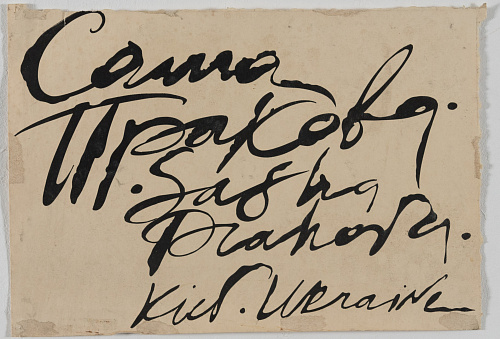 Саша
Прахова.
Sasha
Prahova.
Kiev. Ukraine